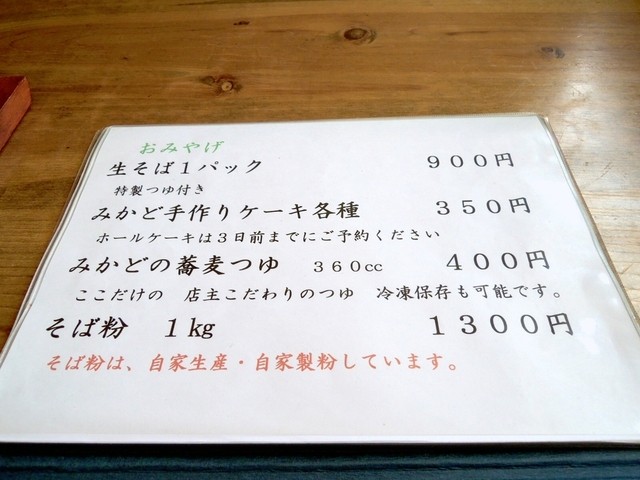 おみやげ
生そば１パック　９００円
特製つゆ付き
みかど手作りケーキ各種　３５０円
ホールケーキは３日前までにご予約ください
みかどの蕎麦つゆ　３６０cc　４００円
ここだけの　店主こだわりのつゆ　冷凍保存も可能です。
そば粉　１㎏　１３００円
そば粉は、自家生産・自家製粉しています。